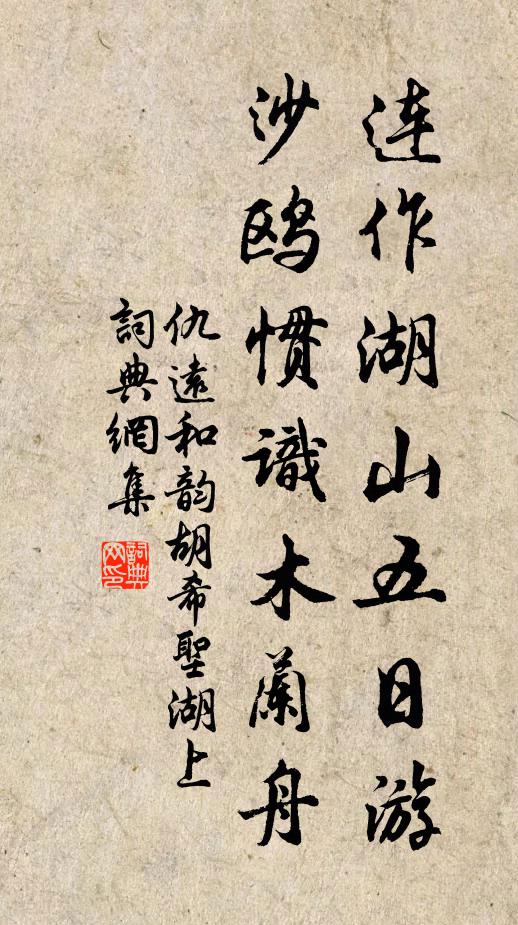 连作湖山五日游
沙鸥惯識木蘭舟
仇遠和韵胡希聖湖上
詞典網集
詞典
网印